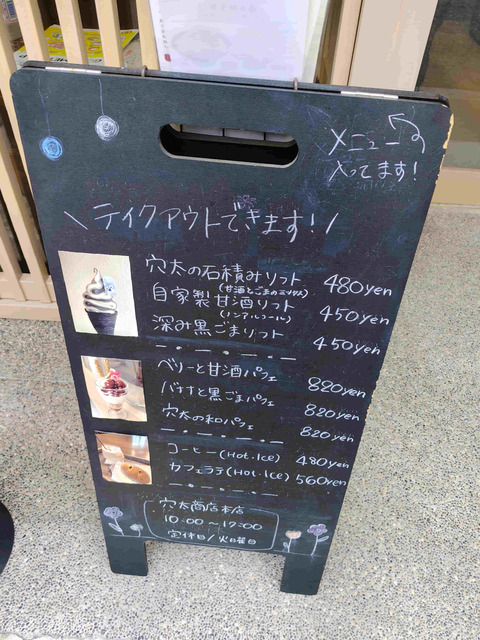 メニュー
入ってます!
\テイクアウトできます!/
穴太の石積みソフト 480yen
(甘酒とごまのミックス)
自家製甘酒ソフト 450yen
(ノンアルコール)
深み黒ごまソフト 450yen
ベリーと甘酒パフェ 820yen
バナナと黒ごまパフェ 820yen
穴太の和パフェ 820yen
コーヒー(Hot・Ice) 480yen
カフェラテ(Hot・Ice) 560yen
穴太商店本店
10:00~17:00
定休日/火曜日